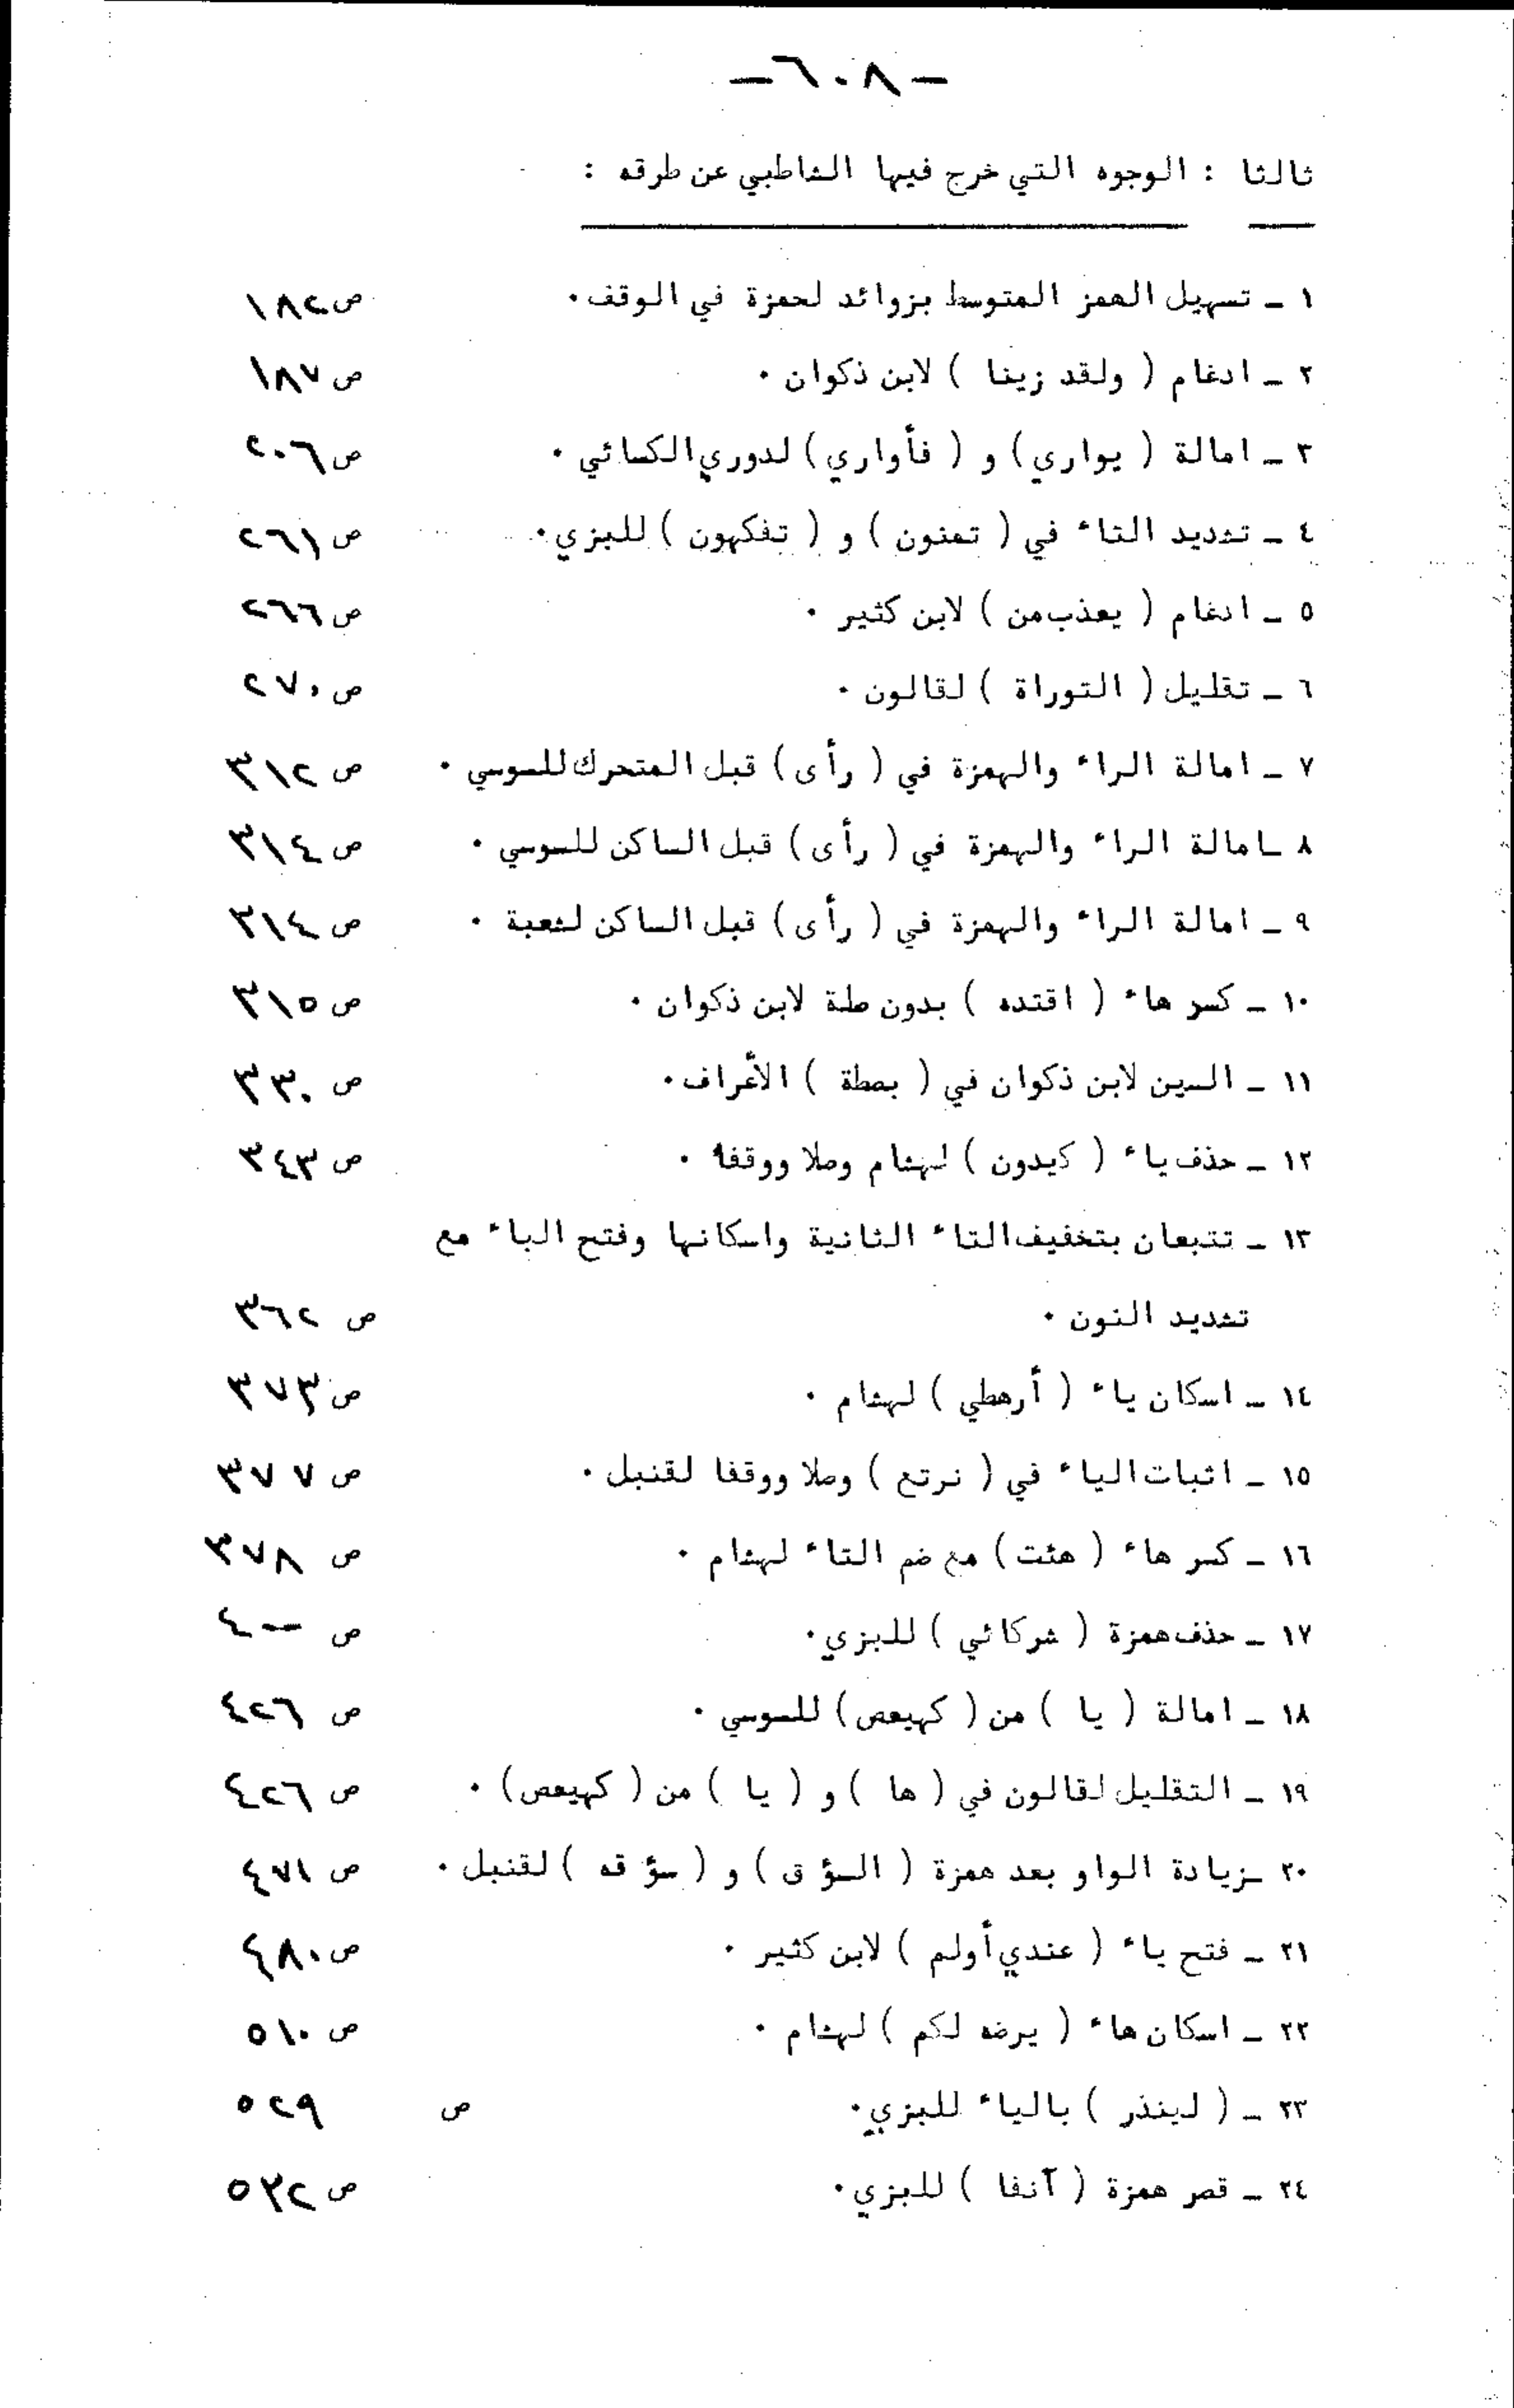 -٦٠٨-
ثالثا : الوجوه التي خرج فيها الشاطبي عن طرقه :
١ - تسهيل الهمز المتوسط بزوائد لحمزة في الوقف. ص ١٨٢
٢ - ادغام ( ولقد زينا ) لابن ذكوان . ص ١٨٧
٣ - امالة ( يواري) و ( فأواري) لدوري الكسائي . ص ٢٠٦
٤ - تشديد التاء في ( تمنون ) و ( تفكهون ) للبزي. ص ٢٦١
٥ - ادغام ( يعذب من ) لابن كثير . ص ٢٦٦
٦ - تقليل ( التوراة ) لقالون . ص ٢٧٠
٧ - امالة الراء والهمزة في ( رأى) قبل المتحرك للسوسي . ص ٣١٢
٨ - امالة الراء والهمزة في ( رأى) قبل الساكن للسوسي . ص ٣١٤
٩ - امالة الراء والهمزة في ( رأى) قبل الساكن لشعبة . ص ٣١٤
١٠ - كسر هاء ( اقتده ) بدون صلة لابن ذكوان . ص ٣١٥
١١ - السين لابن ذكوان في ( بصطة ) الأعراف. ص ٣٣٠
١٢ - حذف ياء ( كيدون ) لهشام وصلا ووقفا . ص ٣٤٣
١٣ - تتبعان بتخفيف التاء الثانية واسكانها وفتح الباء مع
تشديد النون . ص ٣٦٢
١٤ - اسكان ياء ( أرهطي ) لهشام . ص ٣٧٣
١٥ - اثبات الياء في ( نرتع ) وصلا ووقفا لقنبل . ص ٣٧٧
١٦ - كسر هاء ( هئت) مع ضم التاء لهشام . ص ٣٧٨
١٧ - حذف همزة ( شركائي ) للبزي. ص ٤٠٠
١٨ - امالة ( يا ) من ( كهيعص) للسوسي . ص ٤٢٦
١٩ - التقليل لقالون في ( ها ) و ( يا ) من ( كهيعص) . ص ٤٢٦
٢٠ - زيادة الواو بعد همزة ( السؤق ) و ( سؤقه ) لقنبل . ص ٤٧١
٢١ - فتح ياء ( عندي أولم ) لابن كثير . ص ٤٨٠
٢٢ - اسكان هاء ( يرضه لكم ) لهشام . ص ٥١٠
٢٣ - ( لينذر ) بالياء للبزي. ص ٥٢٩
٢٤ - قصر همزة ( آنفا ) للبزي. ص ٥٣٢